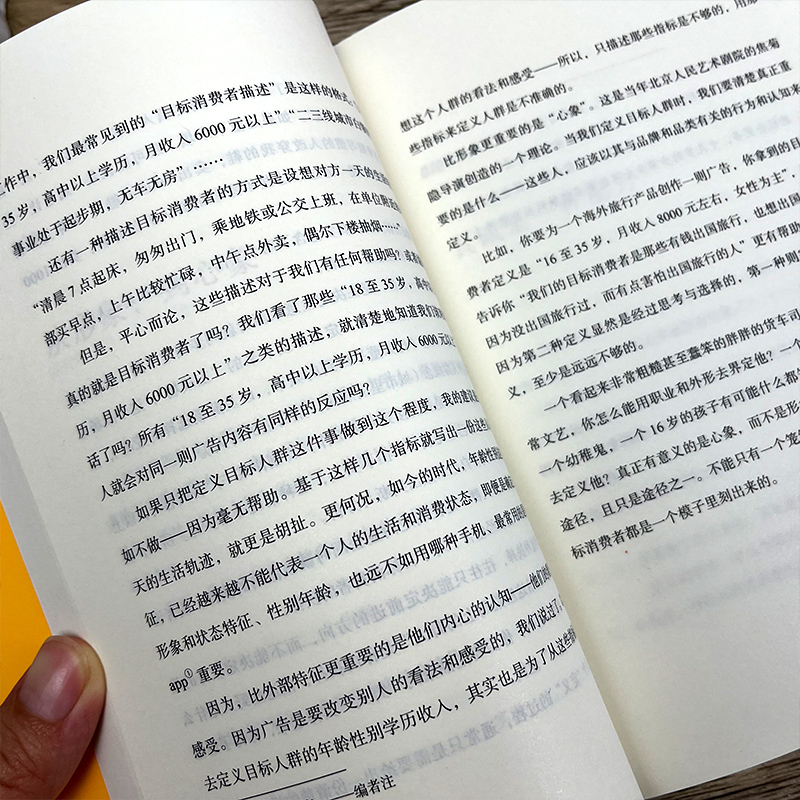 工作中，我们最常见到的“目标消费者描述”是这样的格式：
35岁，高中以上学历，月收入6000元以上”“二三线城市
事业处于起步期，无车无房”……
还有一种描述目标消费者的方式是设想对方一天的生活
“清晨7点起床，匆匆出门，乘地铁或公交上班，在单位附近
都买早点，上午比较忙碌，中午点外卖，偶尔下楼抽烟……”
但是，平心而论，这些描述对于我们有任何帮助吗？
真的就是目标消费者了吗？我们看了那些“18至35岁，高中
历，月收入6000元以上”之类的描述，就清楚地知道我们
话了吗？所有“18至35岁，高中以上学历，月收入6000元以上
人就会对同一则广告内容有同样的反应吗？
如果只把定义目标人群这件事做到这个程度，我的建议
如不做——因为毫无帮助。基于这样几个指标就写出一份这些
天的生活轨迹，就更是胡扯。更何况，如今的时代，年龄性别
征，已经越来越不能代表一个人的生活和消费状态，即便是
形象和状态特征、性别年龄，也远不如用哪种手机、最常用
app①重要。
因为，比外部特征更重要的是他们内心的认知——他们的
感受。因为广告是要改变别人的看法和感受的，我们说过了，
去定义目标人群的年龄性别学历收入，其实也是为了从这些
——编者注
想这个人群的看法和感受——所以，只描述那些指标是不够的，用那
些指标来定义人群是不准确的。
比形象更重要的是“心象”。这是当年北京人民艺术剧院的焦菊
隐导演创造的一个理论。当我们定义目标人群时，我们要清楚真正重
要的是什么——这些人，应该以其与品牌和品类有关的行为和认知来
定义。
比如，你要为一个海外旅行产品创作一则广告，你拿到的目
费者定义是“16至35岁，月收入8000元左右，女性为主”，
告诉你“我们的目标消费者是那些有钱出国旅行，也想出国
因为没出国旅行过，而有点害怕出国旅行的人”更有帮助
因为第二种定义显然是经过思考与选择的，第一种则
义，至少是远远不够的。
一个看起来非常粗糙甚至蠢笨的胖胖的货车司
常文艺，你怎么能用职业和外形去界定他？一个
一个幼稚鬼，一个16岁的孩子有可能什么都
去定义他？真正有意义的是心象，而不是形
途径，且只是途径之一。不能只有一个笼
标消费者都是一个模子里刻出来的。